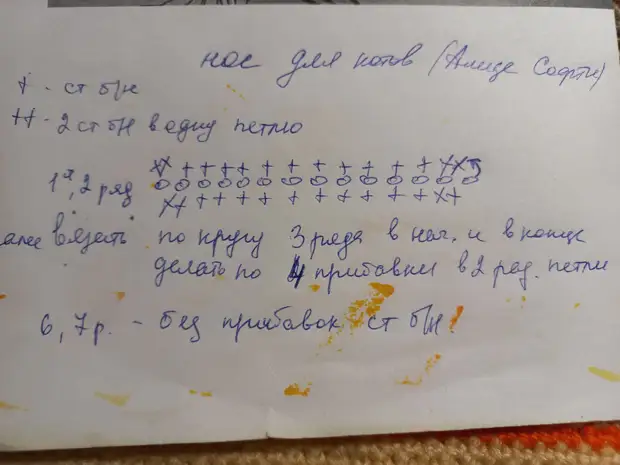 нос для котов (Алиде Софти)
+ - ст б/н
++ - 2 ст бН в одну петлю
1я, 2 ряд
алее вязать по кругу 3 ряда в нач. и в конце
делать по 4 прибавки в 2 ряд. петли
6, 7 р. - без прибавок ст б/н!